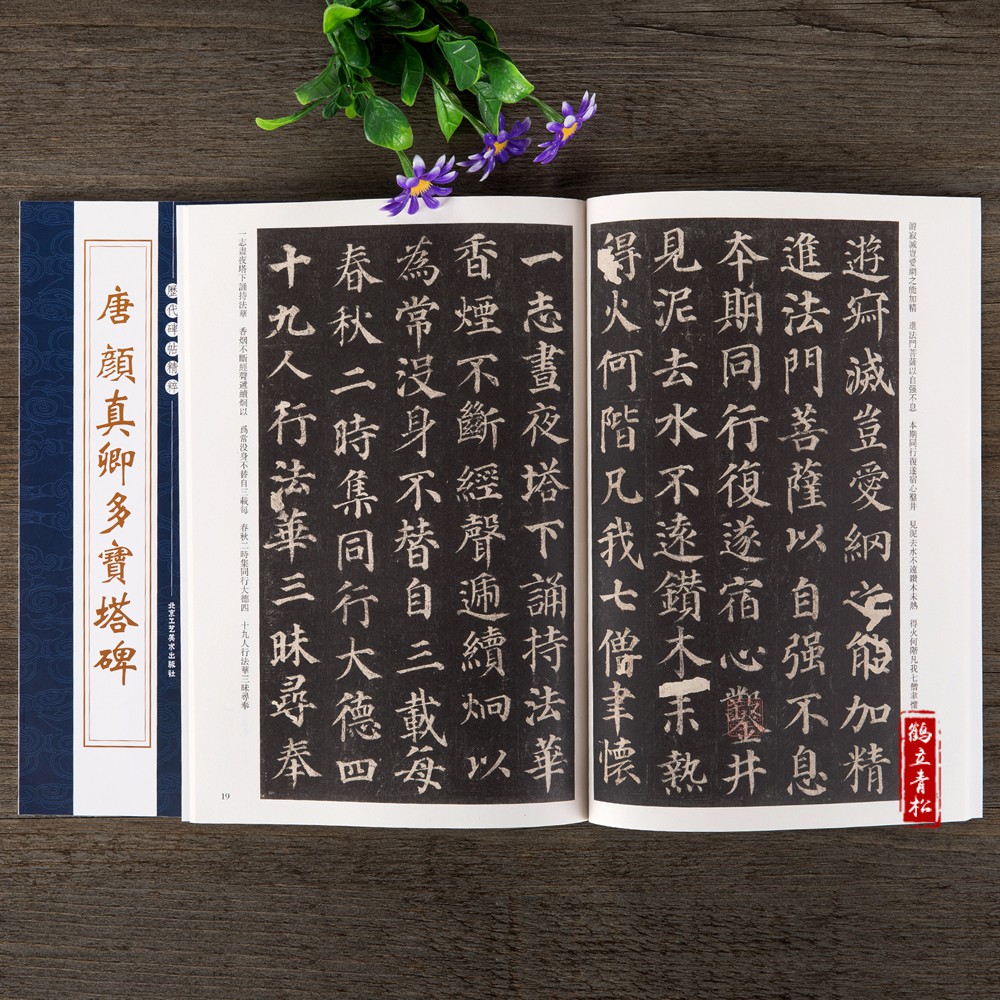 唐 顏真卿多寶塔碑
歷代碑帖精粹
北京工艺美术出版社
遊寂滅豈愛網之能加精
進法門菩薩以自强不息
本期同行復遂宿心鑿井
見泥去水不遠鑽木未熱
得火何階凡我七僧聿懷
游寂滅豈愛網之能加精 進法門菩薩以自强不息 本期同行復遂宿心鑿井 見泥去水不遠鑽木未熱 得火何階凡我七僧聿懷
一志晝夜塔下誦持法華
香煙不斷經聲遞續炯以
為常没身不替自三載每
春秋二時集同行大德四
十九人行法華三昧尋奉
一志晝夜塔下誦持法華 香烟不斷經聲遞續炯以 爲常没身不替自三載每 春秋二時集同行大德四 十九人行法華三昧尋奉
19
鹤立青松